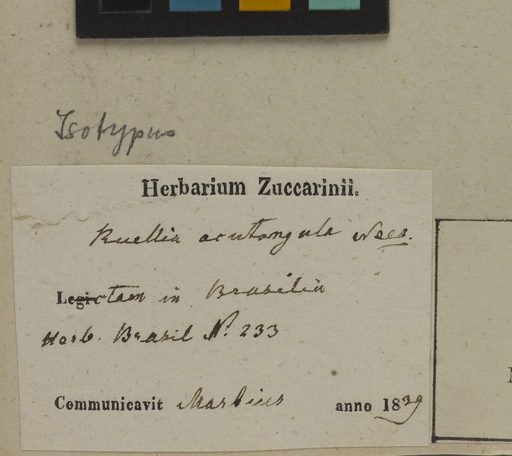 Isotypus
Herbarium Zuccarinii.
Ruellia acutangula Nees.
Lectam in Brasilia
Herb. Brasil Nº. 233
Communicavit Martius anno 1839